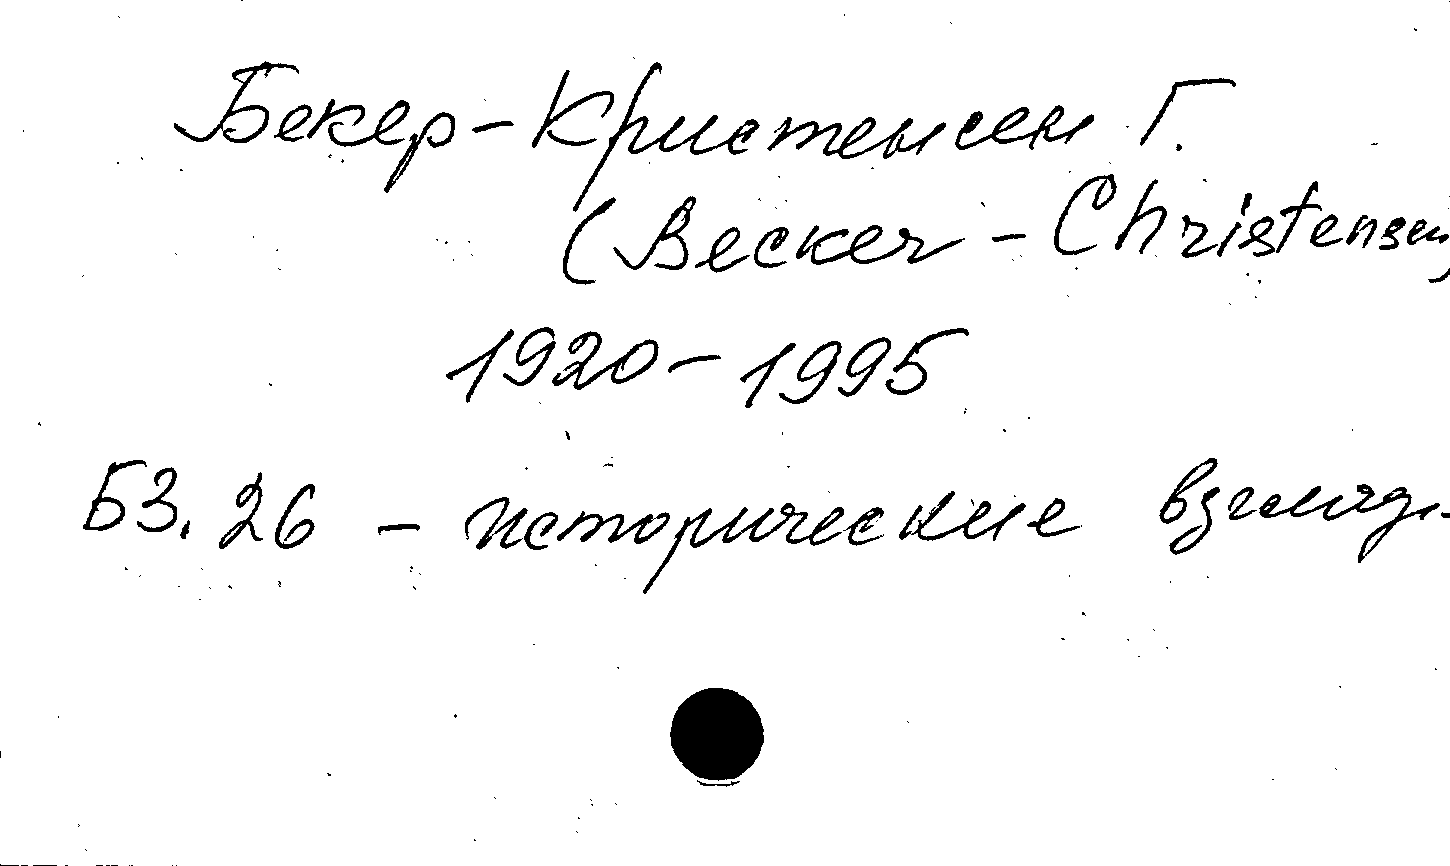 Бекер-Кристенсен Г.
(Becker - Christensen,
1920-1995
Б3.26 - исторические взгляды